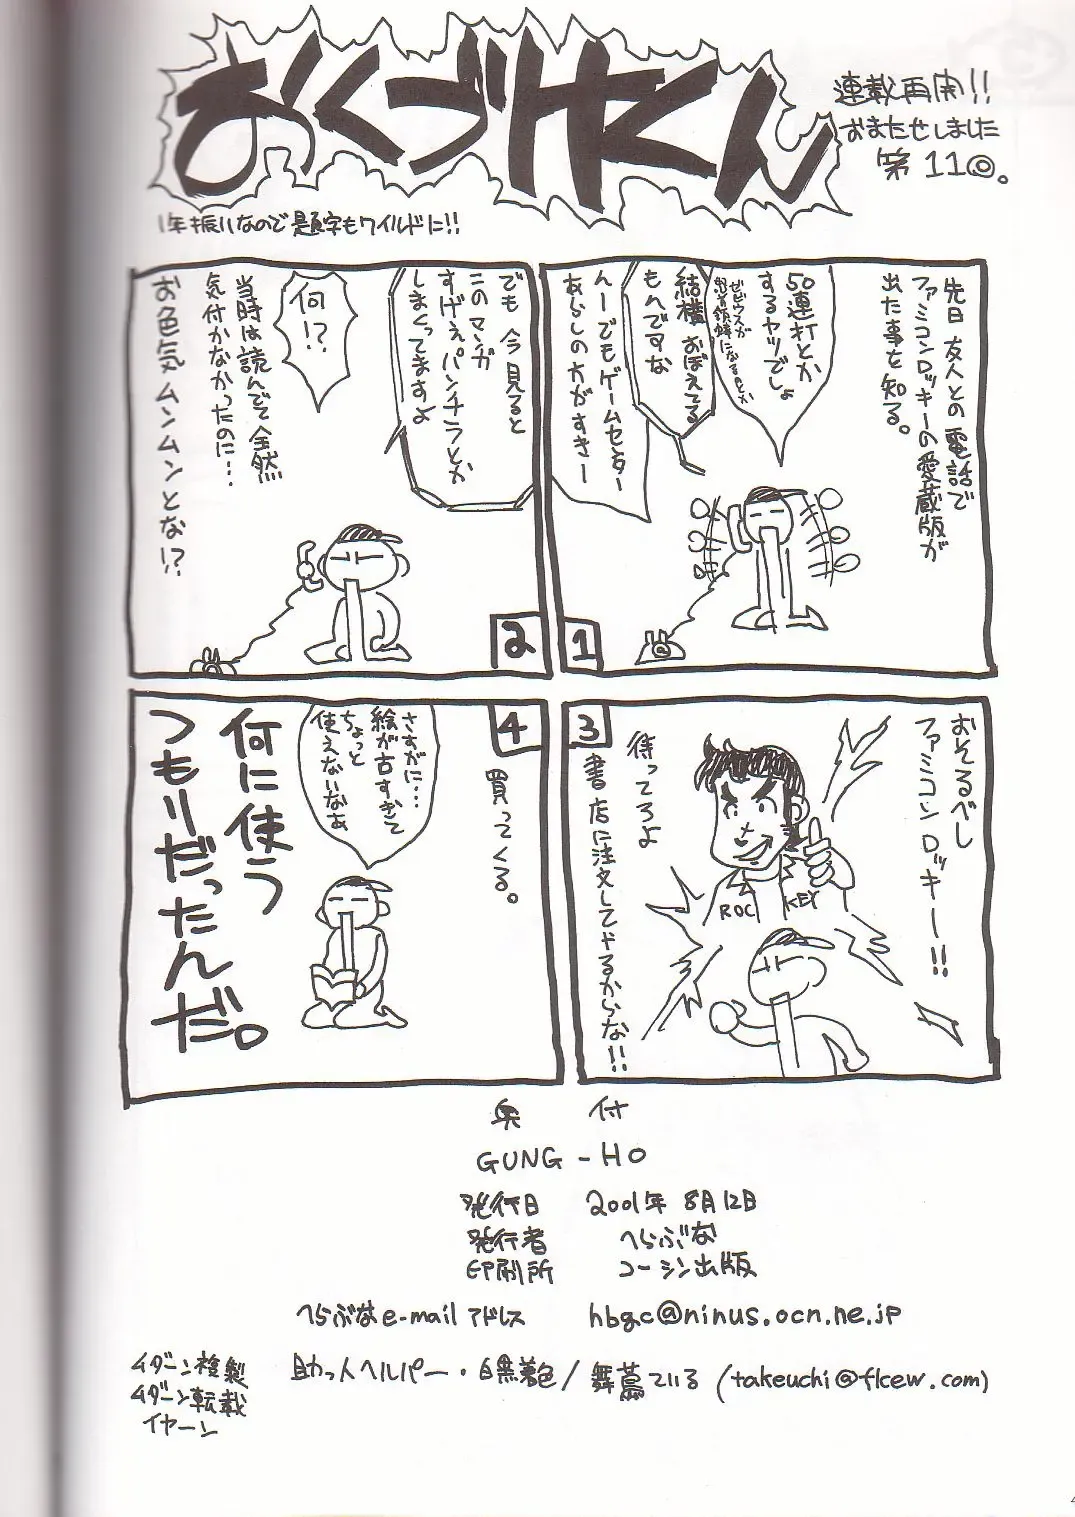 おくづけくん
連載再開!!
おまたせしました
第11回。
1年振りなので題字もワイルドに!!
先日 友人との電話で
ファミコンロッキーの愛蔵版が
出た事を知る。
50連打とか
するヤツでしょ
ゼビウスが
結構 おぼえてる
もんですな
んーでもゲームセンター
あらしの方がすきー
1
でも 今見ると
このマンガ
すげえパンチラとか
しまくってますよ
何!?
当時は読んでて全然
気付かなかったのに…
お色気ムンムンとな!?
2
おそるべし
ファミコンロッキー!!
ROC KEY
待ってろよ
書店に注文してやるからな!!
3
4
買ってくる。
さすがに…
絵が古すぎて
ちょっと
使えないなあ
何に使う
つもりだったんだ。
奥付
GUNG-HO
発行日 2001年8月12日
発行者 へらぶな
印刷所 コーシン出版
へらぶなe-mailアドレス hbgc@ninus.ocn.ne.jp
助っ人ヘルパー・白黒着色/舞蔦ている (takeuchi@flcew.com)
ムダーン複製
ムダーン転載
イヤーン
4